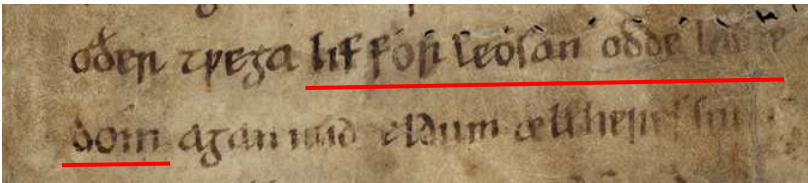 oðer tƿega lif for leosan oððe
dom agan mid eldum ælfheres